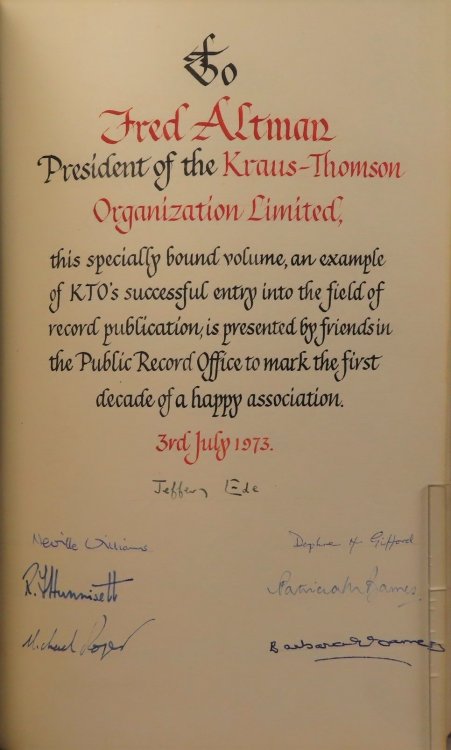 To
Fred Altman
President of the Kraus-Thomson
Organization Limited,
this specially bound volume, an example
of KTO's successful entry into the field of
record publication, is presented by friends in
the Public Record Office to mark the first
decade of a happy association.
3rd July 1973.
Jeffery Ede
Neville Williams
Daphne H Gifford
R.F. Hunnisett
Patricia M Barnes.
Michael Roper
Barbara